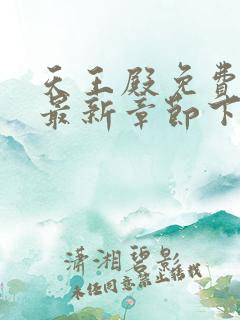 天王殿免费
最新章节下
潇湘碧影
未经同意禁止转载